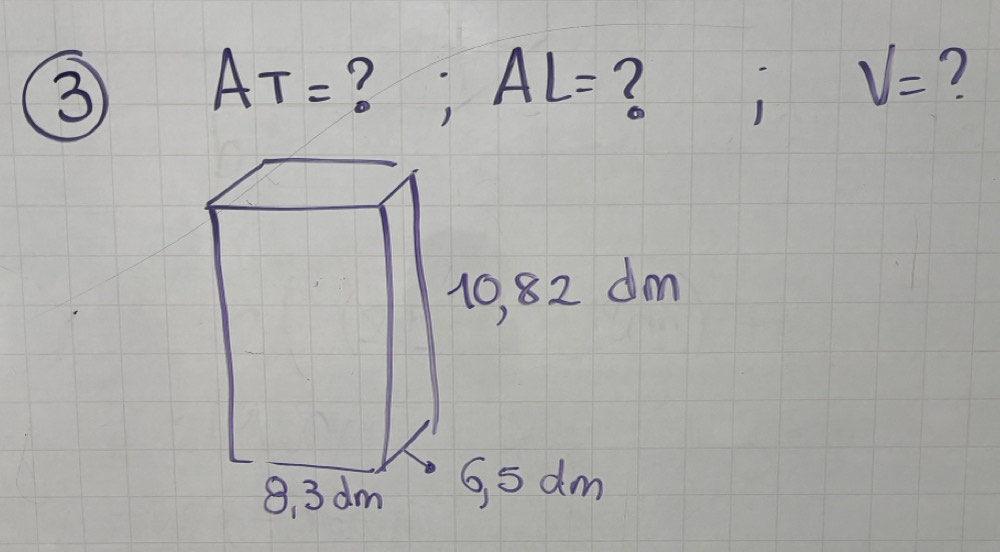 3 AT = ? ; AL = ? ; V = ?
10,82 dm
6,5 dm
8,3 dm